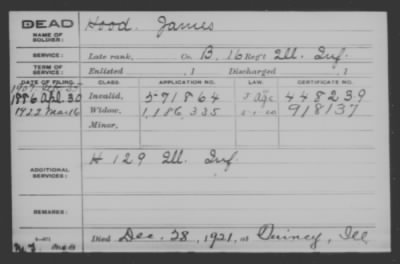 DEAD
NAME OF SOLDIER: Hood, James
SERVICE: Late rank, Co. B, 16 Reg't Ill. Inf.
TERM OF SERVICE: Enlisted , 1 Discharged , 1
DATE OF FILING. CLASS. APPLICATION NO. LAW. CERTIFICATE NO.
1886 Apl. 30 Invalid, 571864 Age 448239
1922 Mar 16 Widow, 1,186,335 918137
Minor,
ADDITIONAL SERVICES: H 129 Ill. Inf.
REMARKS:
Died Dec. 28, 1921, at Quincy, Ill